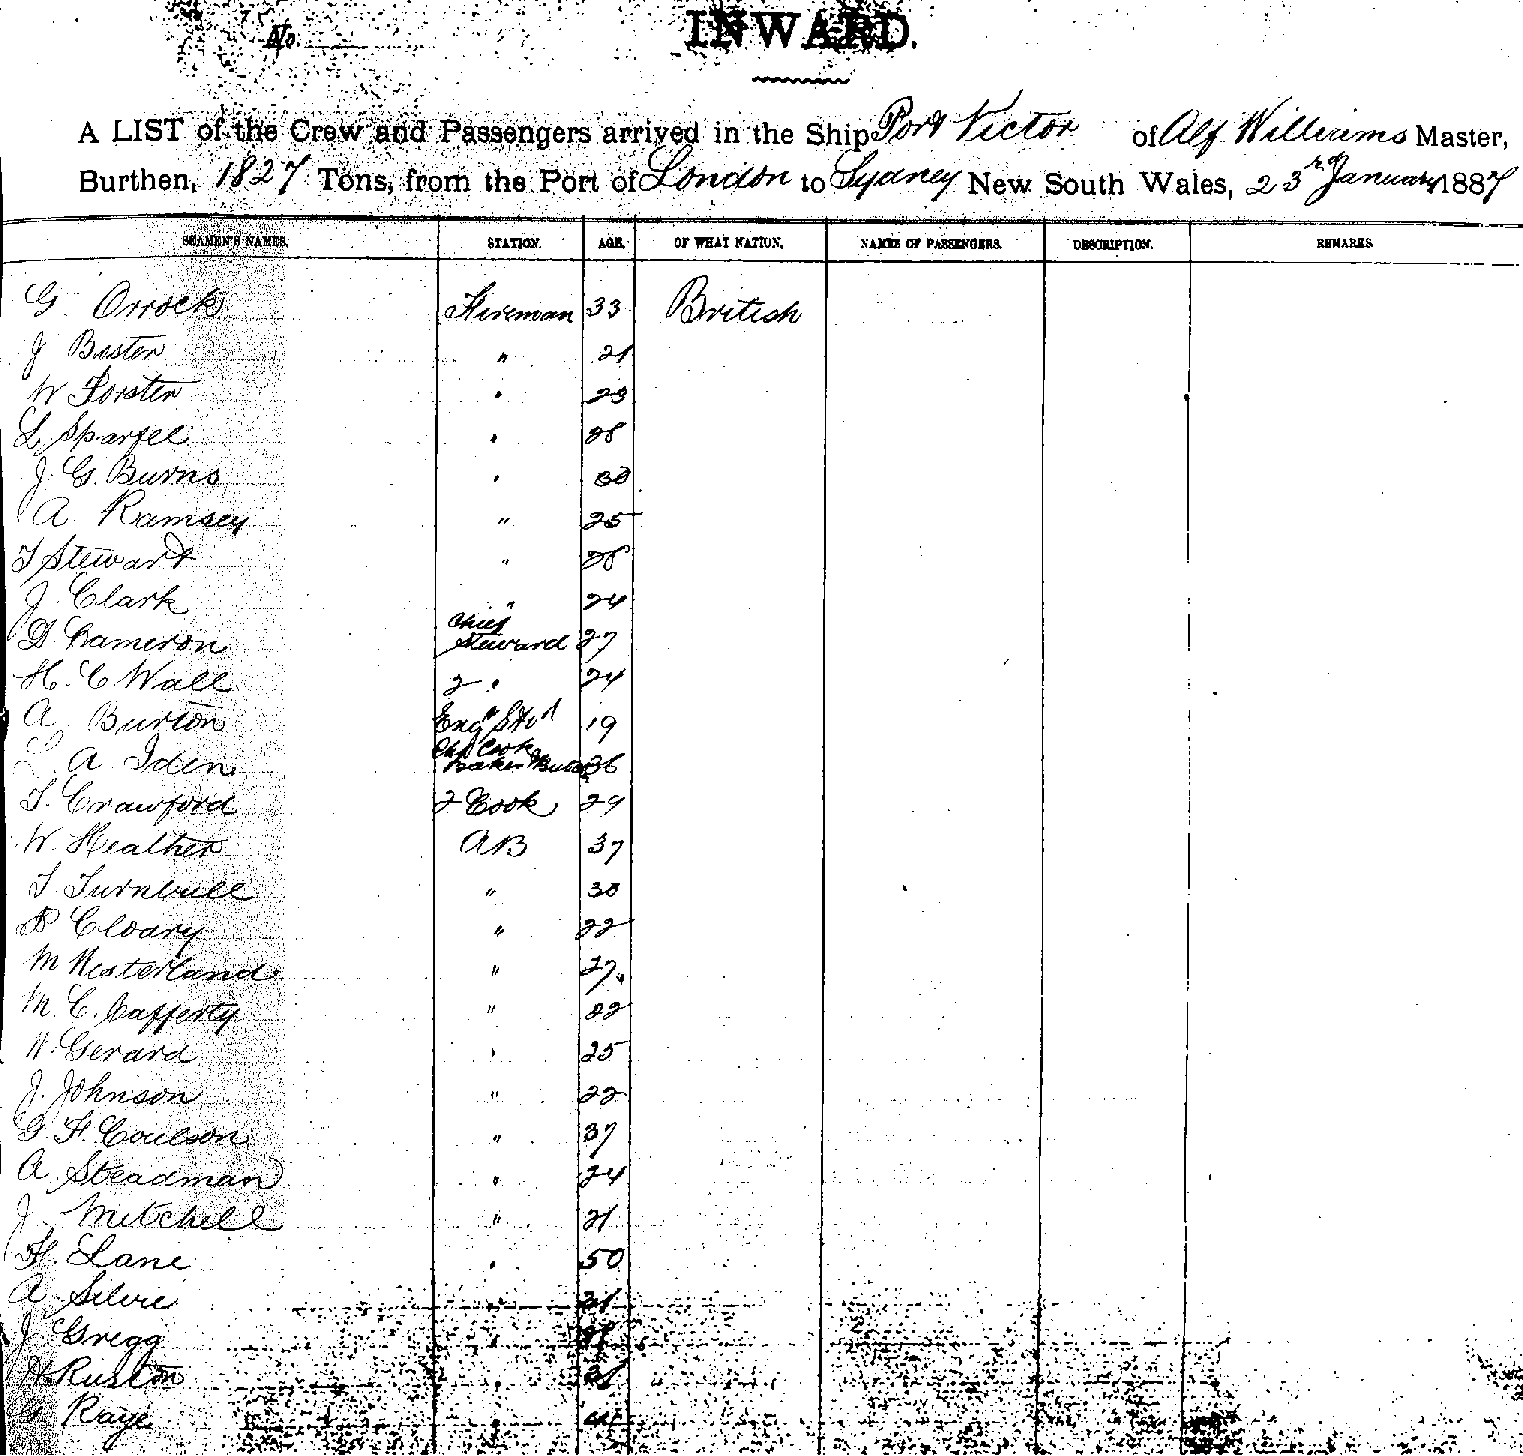 No.
INWARD.
A LIST of the Crew and Passengers arrived in the Ship Port Victor of Alf Williams Master,
Burthen, 1827 Tons, from the Port of London to Sydney New South Wales, 23rd January 1887
SEAMEN'S NAMES. STATION. AGE. OF WHAT NATION. NAMES OF PASSENGERS. DESCRIPTION. REMARKS
G Orrock Fireman 33 British
J Bester " 21
W Forster " 23
L Sparfel " 28
J. G. Burns " 30
A Ramsey " 25
T Stewart " 28
J. Clark " 24
D Cameron Chief Steward 27
H. C Wall 2 " 24
A Burton Engrs Stwd 19
L A Iden Chf Cook Baker & 36
T. Crawford 2 Cook 29
W. Heather AB 37
T Turnbull " 30
P Cloary " 22
M Westerland " 27
M. C. Cafferty " 22
W. Gerard " 25
J. Johnson " 22
G F. Coulson " 37
A Steadman " 24
J Mitchell " 21
H. Lane " 50
A Silvie " 21
J Gregg "
Ruston "
Raye "